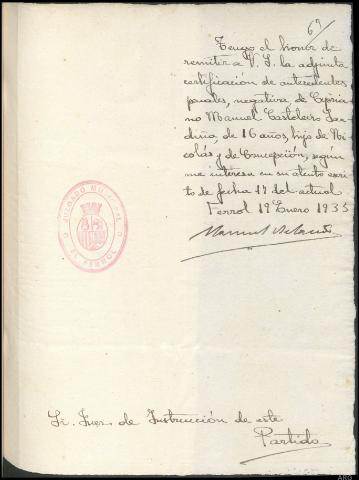 69
Tengo el honor de
remitir a V. S. la adjunta
certificación de antecedentes
penales, negativa, de Cipria-
no Manuel Casteleiro
de 16 años, hijo de Ni-
colás y de Concepción, según
me interesa en su atento escri-
to de fecha 17 del actual
Ferrol 19 Enero 1935
Manuel
JUZGADO MUNICIPAL
EL FERROL
Sr. Juez de Instrucción de este
Partido